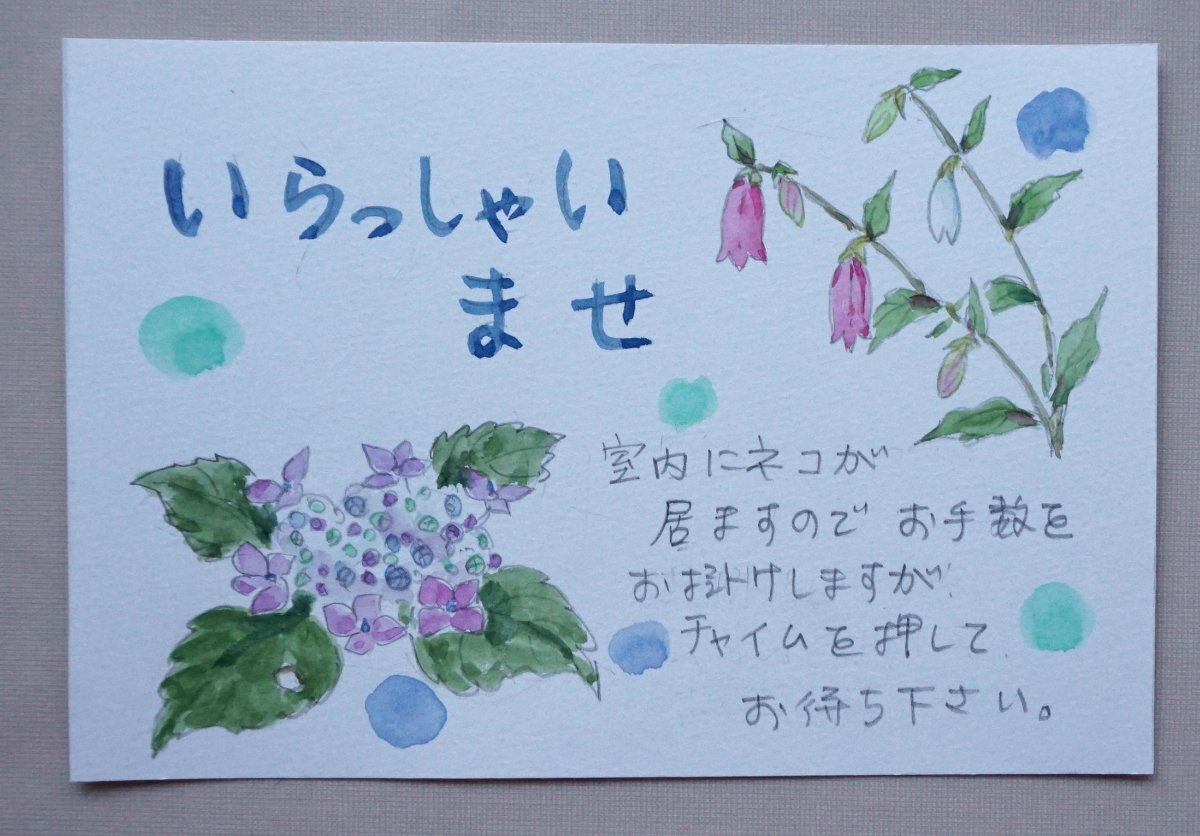 いらっしゃい
ませ
室内にネコが
居ますので お手数を
お掛けしますが
チャイムを押して
お待ち下さい。